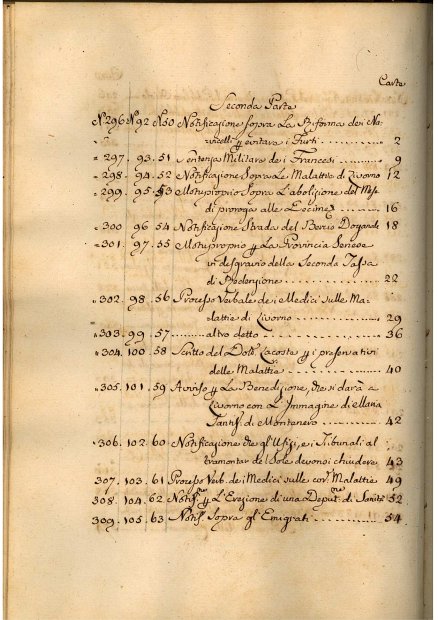 Carte
Seconda Parte
N° 296 N° 92 N. 50 Notificazione sopra La Riforma dei No-
vicelli p evitare i Furti 2
" 297. 93. 51 Sentenza Militare dei Francesi 9
" 298. 94. 52 Notificazione Sopra Le Malattie di Livorno 12
" 299. 95. 53 Motuproprio Sopra L'abolizione del
di proroga alle Decime 16
" 300 96 54 Notificazione Strada del Borgo 18
" 301. 97. 55 Motuproprio p La Provincia Senese
in disgravio della Seconda Tassa
di Redenzione 22
" 302. 98. 56 Processo Verbale dei Medici sulle Ma-
lattie di Livorno 29
" 303. 99. 57 altro detto 36
" 304. 100. 58 Scritto del Dott. Lacoste p i preservativi
delle Malattie 40
" 305. 101. 59 Avviso p La Benedizione, che si darà a
Livorno con L'Immagine di Maria
Santis. di Montenero 42
" 306. 102. 60 Notificazione che gl'Ufizi, e i Tribunali al
tramontar del Sole devonsi chiudere 43
307. 103. 61 Processo Verb. dei Medici sulle cor. Malattie 49
308. 104. 62 Notif.ne p L'Erezione di una Deput.ne di Sanità 52
309. 105. 63 Notif. Sopra gl'Emigrati 54